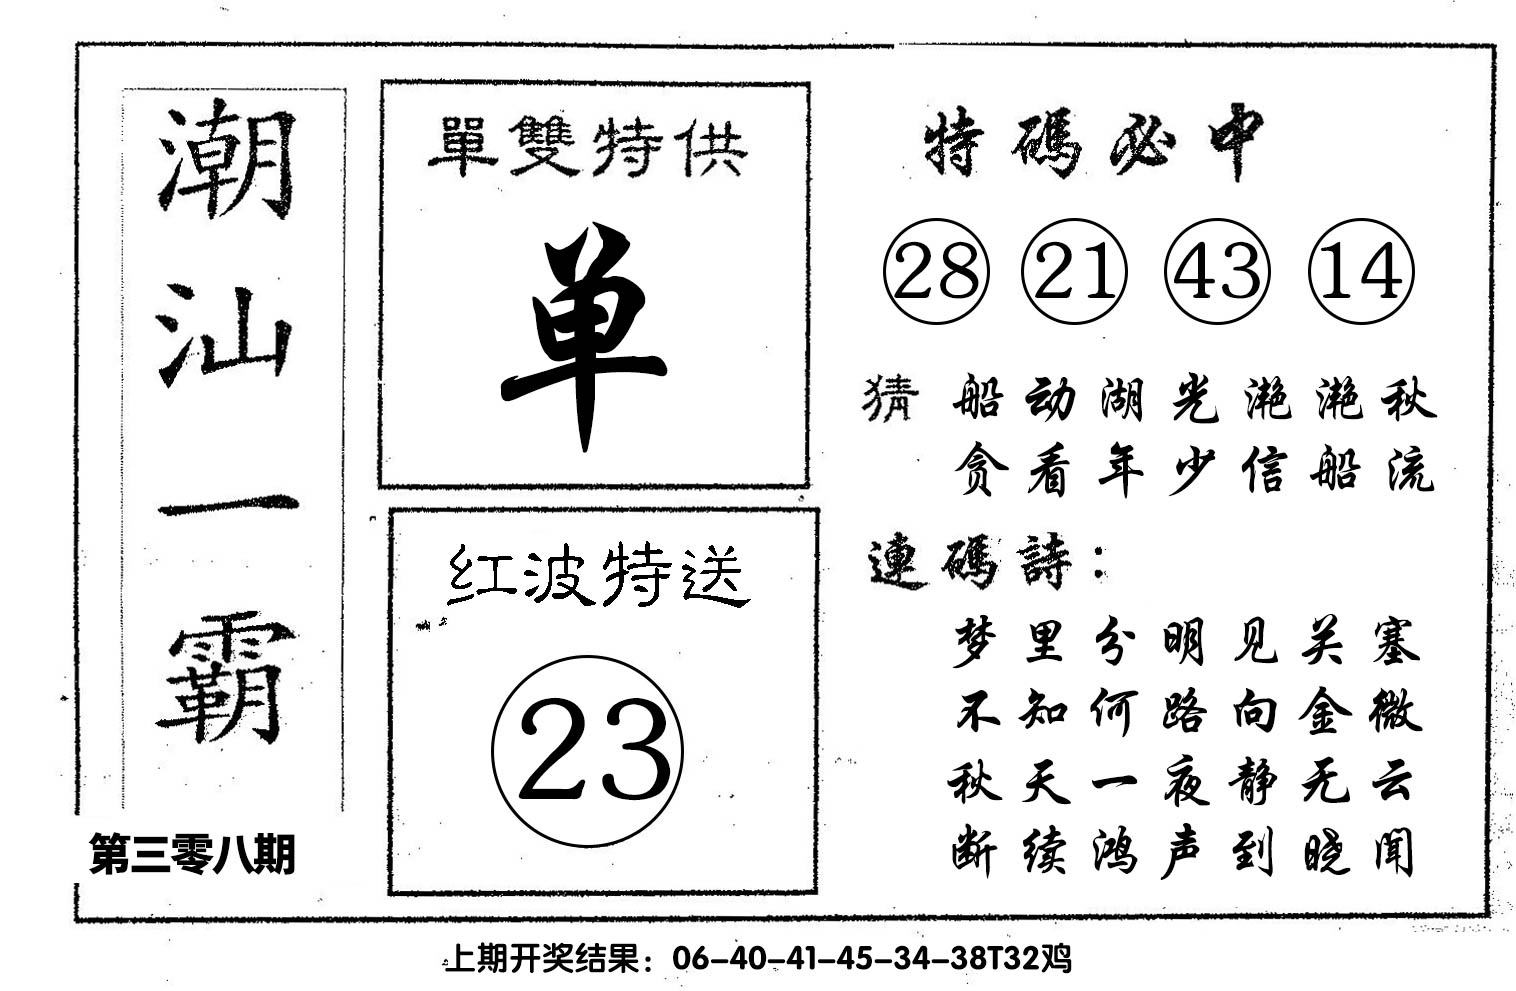 潮汕一霸
第三零八期
單雙特供
单
红波特送
23
特碼必中
28 21 43 14
猜 船动湖光滟滟秋
贪看年少信船流
連碼詩：
梦里分明见关塞
不知何路向金微
秋天一夜静无云
断续鸿声到晓闻
上期开奖结果：06-40-41-45-34-38T32鸡